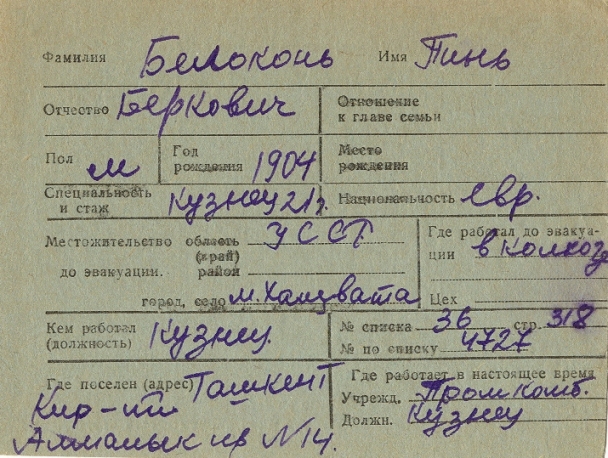 Фамилия Белоконь Имя Пинь
Отчество Беркович Отношение к главе семьи
Пол М Год рождения 1904 Место рождения
Специальность и стаж Кузнец 21 г. Национальность евр.
Местожительство область УССР Где работал до эвакуа-
(край) ции в колхозе
до эвакуации. район
город, село м. Хащевата Цех
Кем работал (должность) Кузнец. № списка 36 стр. 318
№ по списку 4727
Где поселен (адрес) Ташкент Где работает в настоящее время
Учрежд. Промкомб.
Должн. Кузнец
Алмалык пр N 14.